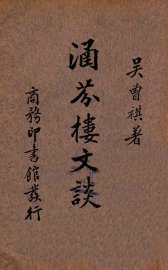 吳曾祺著
涵芬樓文談
商務印書館發行